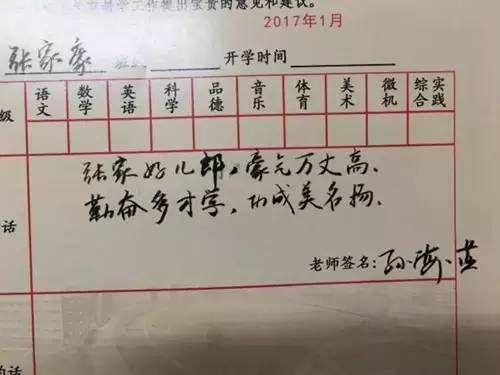 教学工作提出宝贵的意见和建议。
2017年1月
张家豪 班级 开学时间
级 语文 数学 英语 科学 品德 音乐 体育 美术 微机 综合实践
张家好儿郎，豪气万丈高，
勤奋多才学，功成美名扬。
话
老师签名：孙海燕
的话